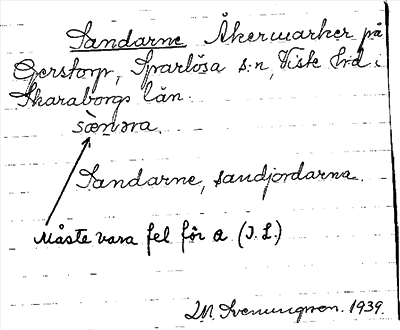 Sandarne Åkermarker på
Gerstorp, Sparlösa s:n, Viste hrd i
Skaraborgs län.
sænəra.
Sandarne, sandjordarna.
Måste vara fel för a (I.L.)
M. Svenungson. 1939.